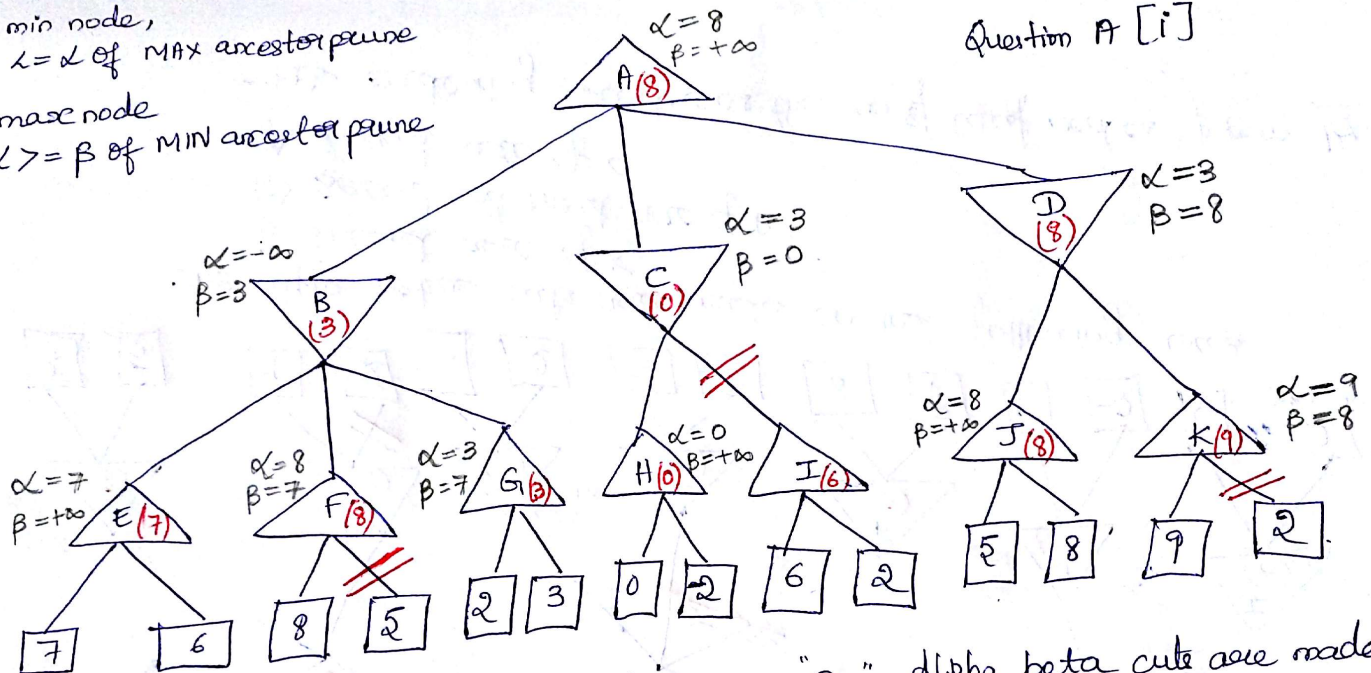 min node,
α = α of MAX ancestor prune
max node
α >= β of MIN ancestor prune
Question A [i]
α = 8
β = +∞
A(8)
α = -∞
β = 3
B
(3)
α = 3
β = 0
C
(0)
α = 3
β = 8
D
(8)
α = 7
β = +∞
E(7)
α = 8
β = 7
F(8)
α = 3
β = 7
G(3)
α = 0
β = +∞
H(0)
I(6)
α = 8
β = +∞
J(8)
α = 9
β = 8
K(9)
7 6 8 5 2 3 0 -2 6 2 5 8 9 2
" " alpha beta cuts are made